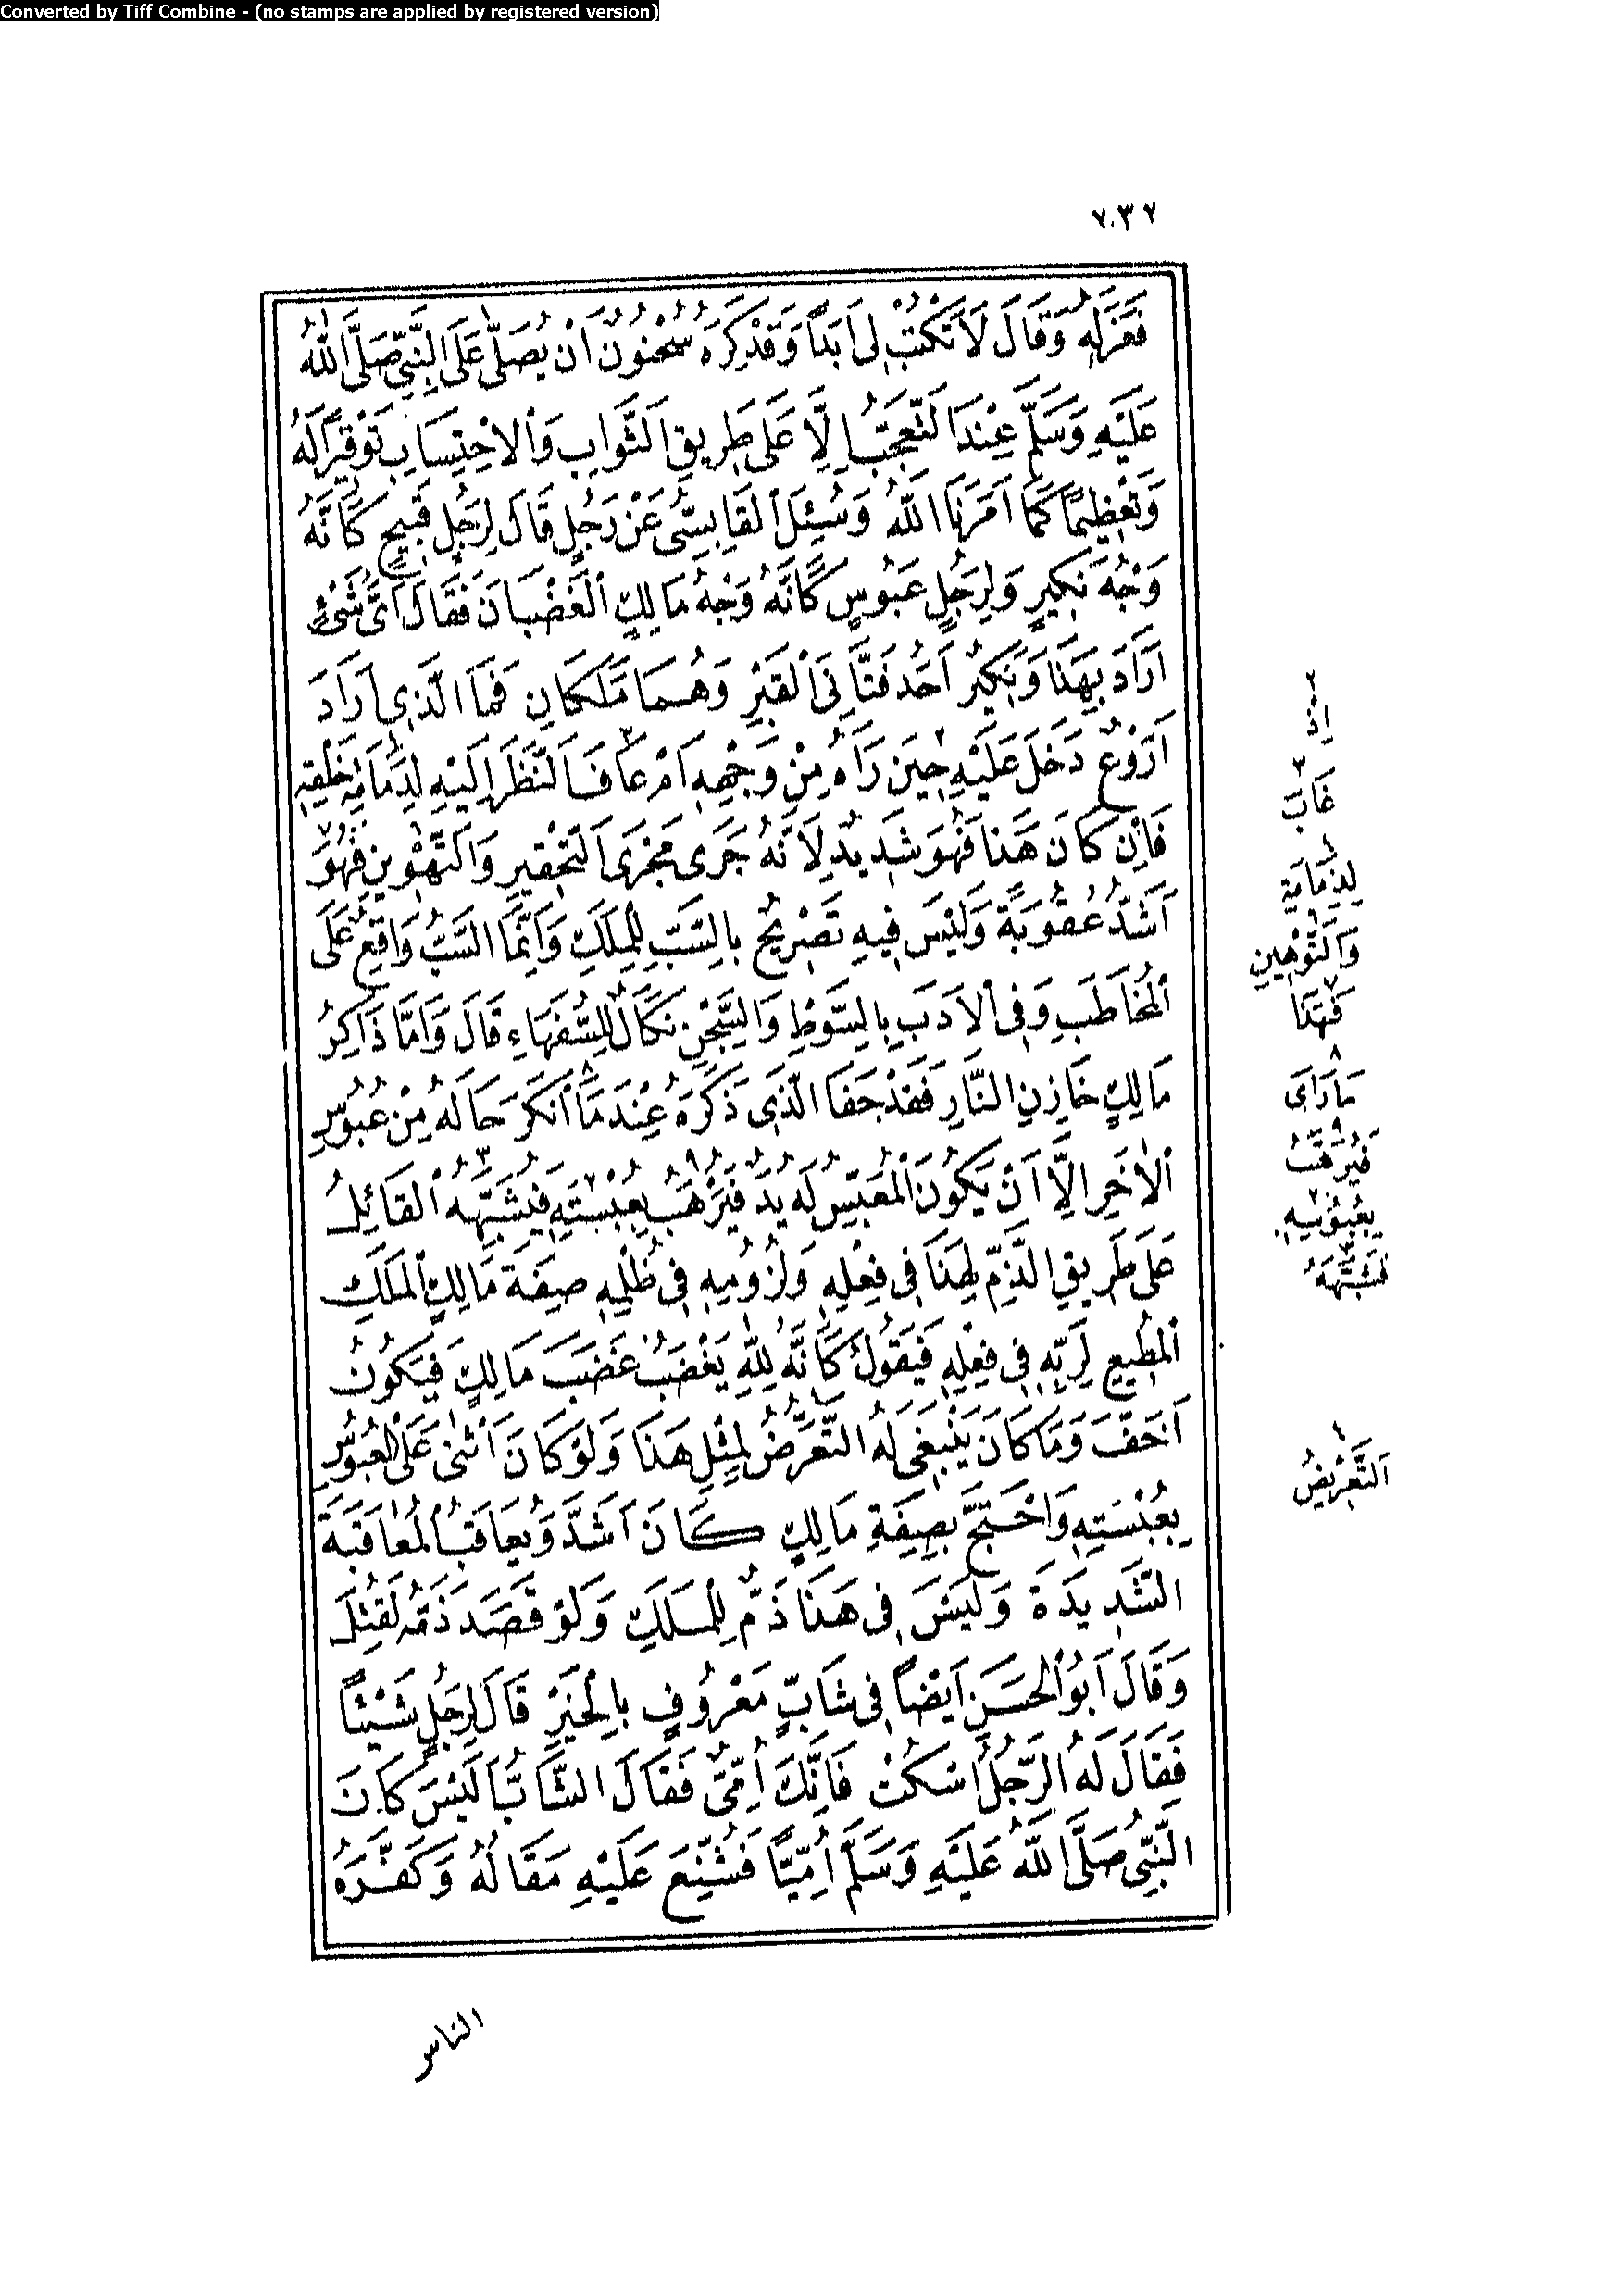 Converted by Tiff Combine - (no stamps are applied by registered version)
٧٠٣٧
فَعَزَلَهُ وَقَالَ لَا تَكْتُبْ لِي أَبَدًا وَقَدْ كَرِهَ سُحْنُونٌ أَنْ يُصَلَّى عَلَى النَّبِيِّ صَلَّى اللهُ
عَلَيْهِ وَسَلَّمَ عِنْدَ التَّعَجُّبِ إِلَّا عَلَى طَرِيقِ الثَّوَابِ وَالْاِحْتِسَابِ تَوْقِيرًا لَهُ
وَتَعْظِيمًا كَمَا أَمَرَنَا اللهُ وَسُئِلَ الْقَابِسِيُّ عَنْ رَجُلٍ قَالَ لِرَجُلٍ قَبِيحٍ كَأَنَّهُ
وَجْهُ نَكِيرٍ وَلِرَجُلٍ عَبُوسٍ كَأَنَّهُ وَجْهُ مَالِكٍ الْغَضْبَانَ فَقَالَ أَيَّ شَيْءٍ
أَرَادَ بِهَذَا وَنَكِيرٌ أَحَدُ فَتَّانَيِ الْقَبْرِ وَهُمَا مَلَكَانِ فَمَا الَّذِي أَرَادَ
أَرَوْعٌ دَخَلَ عَلَيْهِ حِينَ رَآهُ مِنْ وَجْهِهِ أَمْ عَافَ النَّظَرَ إِلَيْهِ لِدَمَامَةِ خَلْقِهِ
فَإِنْ كَانَ هَذَا فَهُوَ شَدِيدٌ لِأَنَّهُ جَرَى مَجْرَى التَّحْقِيرِ وَالتَّهْوِينِ فَهُوَ
أَشَدُّ عُقُوبَةً وَلَيْسَ فِيهِ تَصْرِيحٌ بِالسَّبِّ لِلْمَلَكِ وَإِنَّمَا السَّبُّ وَاقِعٌ عَلَى
الْمُخَاطَبِ وَفِي الْأَدَبِ بِالسَّوْطِ وَالسِّجْنِ نَكَالٌ لِلسُّفَهَاءِ قَالَ وَأَمَّا ذَاكِرُ
مَالِكٍ خَازِنِ النَّارِ فَقَدْ جَفَا الَّذِي ذَكَرَهُ عِنْدَ مَا أَنْكَرَ حَالَهُ مِنْ عُبُوسِ
الْآخَرِ إِلَّا أَنْ يَكُونَ الْمُعَبِّسُ لَهُ يَدٌ فَيُرْهَبُ بِعُبْسَتِهِ فَيُشَبِّهُهُ الْقَائِلُ
عَلَى طَرِيقِ الذَّمِّ لِهَذَا فِي فِعْلِهِ وَلُزُومِهِ فِي ظُلْمِهِ صِفَةَ مَالِكٍ الْمَلَكِ
الْمُطِيعِ لِرَبِّهِ فِي فِعْلِهِ فَيَقُولُ كَأَنَّهُ لِلَّهِ يَغْضَبُ غَضَبَ مَالِكٍ فَيَكُونُ
أَخَفَّ وَمَا كَانَ يَنْبَغِي لَهُ التَّعَرُّضُ لِمِثْلِ هَذَا وَلَوْ كَانَ أَثْنَى عَلَى الْعَبُوسِ
بِعُبْسَتِهِ وَاحْتَجَّ بِصِفَةِ مَالِكٍ كَانَ أَشَدَّ وَيُعَاقَبُ الْمُعَاقَبَةَ
الشَّدِيدَةَ وَلَيْسَ فِي هَذَا ذَمٌّ لِلْمَلَكِ وَلَوْ قَصَدَ ذَمَّهُ لَقُتِلَ
وَقَالَ أَبُو الْحَسَنِ أَيْضًا فِي شَابٍّ مَعْرُوفٍ بِالْخَيْرِ قَالَ لِرَجُلٍ شَيْئًا
فَقَالَ لَهُ الرَّجُلُ اسْكُتْ فَإِنَّكَ أُمِّيٌّ فَقَالَ الشَّابُّ أَلَيْسَ كَانَ
النَّبِيُّ صَلَّى اللهُ عَلَيْهِ وَسَلَّمَ أُمِّيًّا فَشُنِّعَ عَلَيْهِ مَقَالُهُ وَكَفَّرَهُ
٢
إِذْ
٣
عَابَ
لِذِمَامَةِ
وَالتَّوْهِينِ
٧
فَهَذَا
٨
مَا رَأَى
٩
فَيُرَهِّبُ
٢
بِعُبُوسِهِ
٣
فَشَبَّهَهُ
اَلتَّعْرِيضُ
الناس